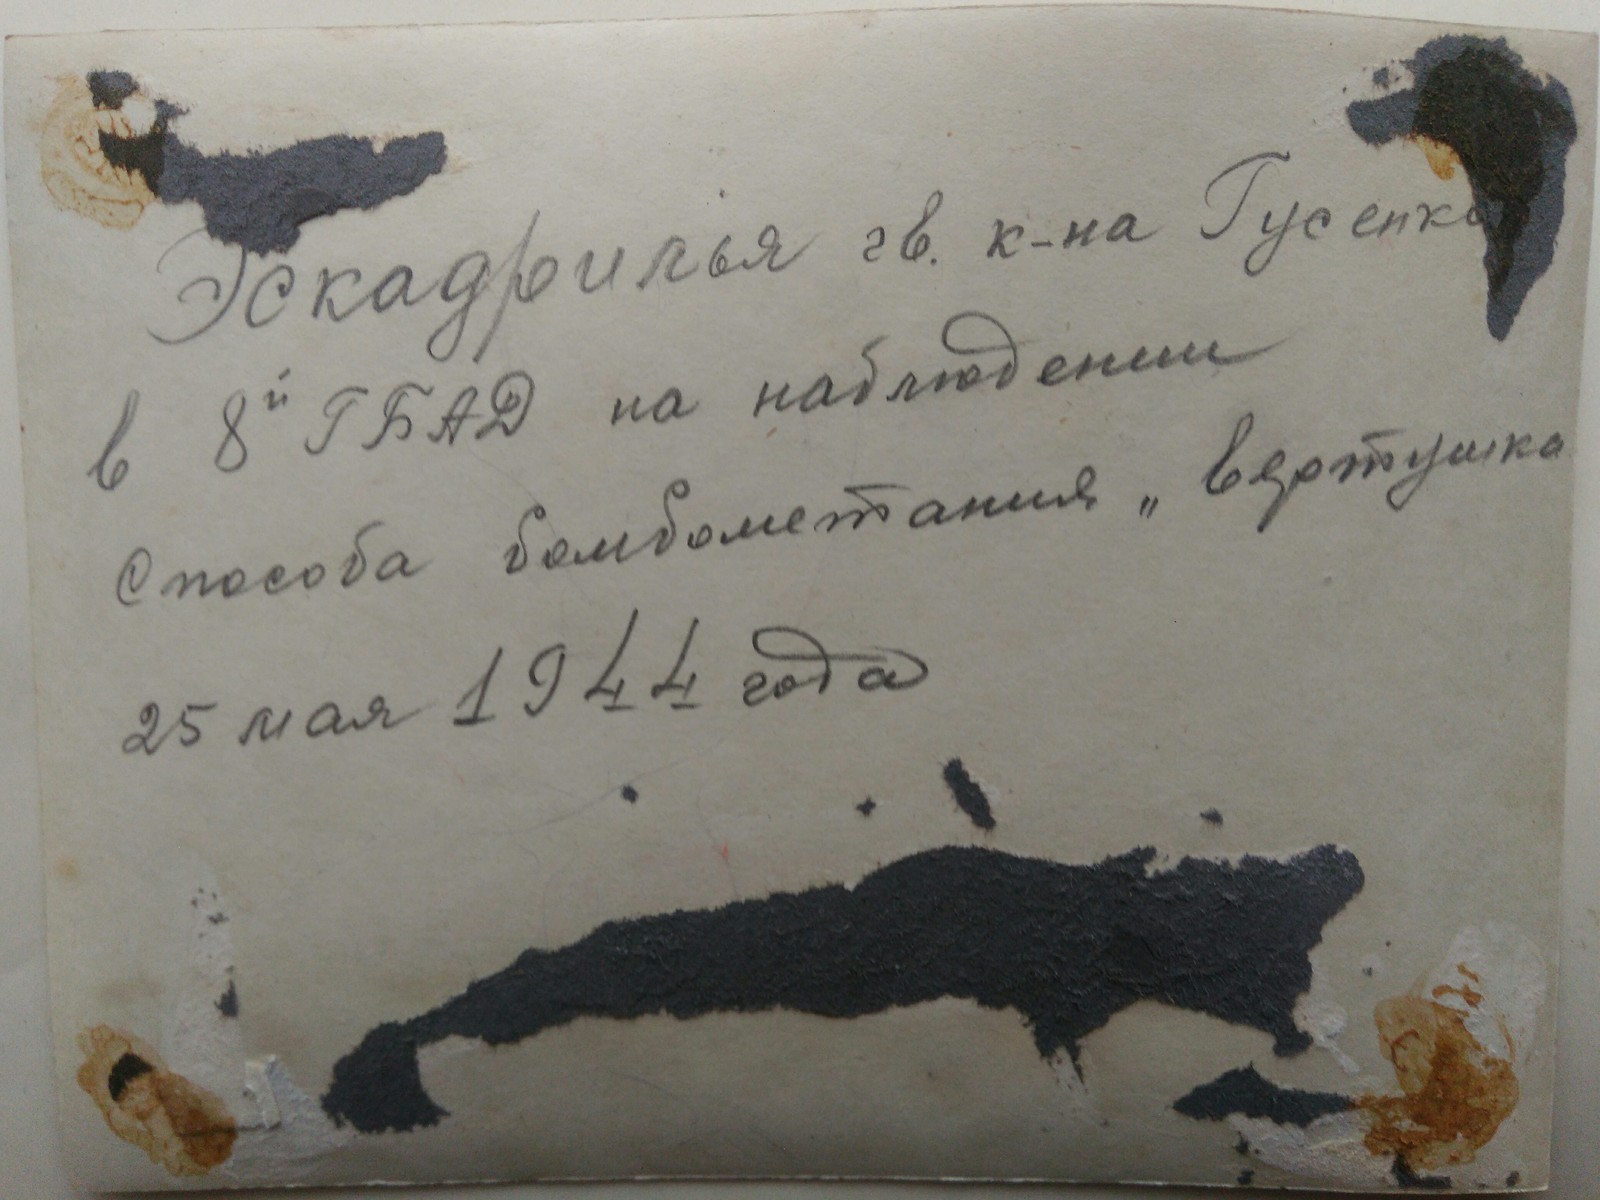 Эскадрилья гв. к-на Гусенко
в 8й ГБАД на наблюдении
способа бомбометания „вертушка
25 мая 1944 года